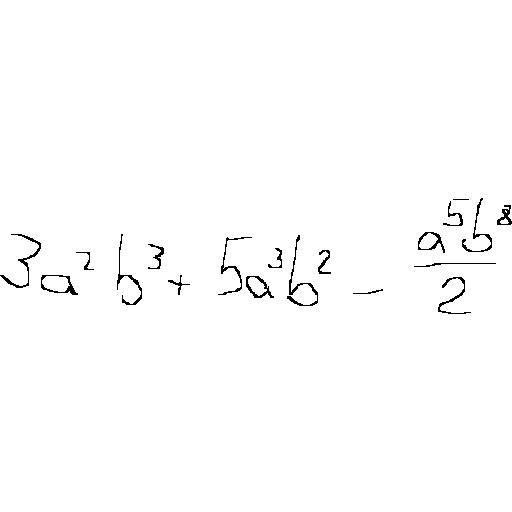 3a² b³ + 5a³b² - \frac{a⁵b⁸}{2}